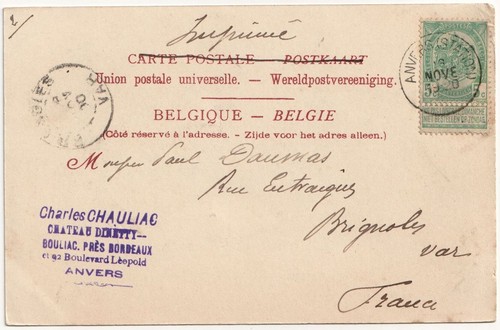 2/
Imprimé
CARTE POSTALE — POSTKAART
Union postale universelle. — Wereldpostvereeniging.
BELGIQUE - BELGIE
(Côté réservé à l'adresse. - Zijde voor het adres alleen.)
Monsieur Paul Daumas
Rue Entraigues
Brignoles
Var
France
Charles CHAULIAC
CHATEAU DINETTY—
BOULIAC, PRÈS BORDEAUX
et 92 Boulevard Léopold
ANVERS
ANVERS (STATION)
NOVE
5
5
BRIGNOLES
VAR